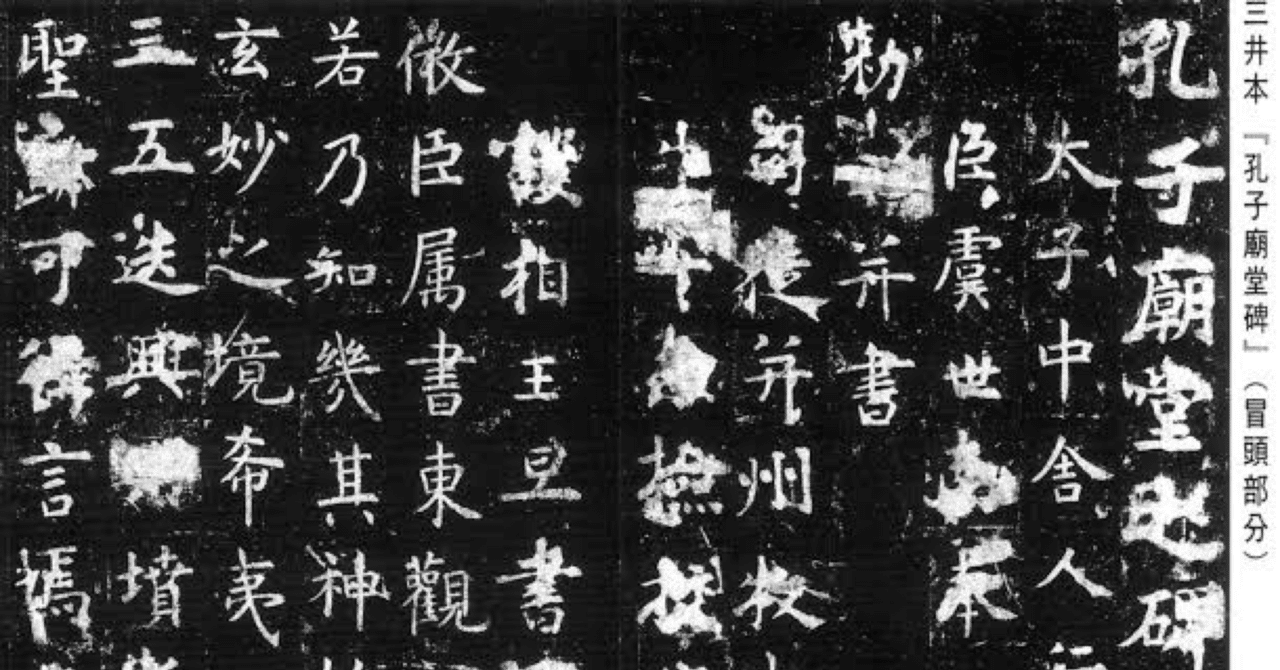 三井本『孔子廟堂碑』（冒頭部分）
孔子廟堂之碑
太子中舍人行
臣虞世南
勅并書
司徒并州牧
校
護相王旦書
微臣属書東觀
若乃知幾其神
玄妙之境希夷
三五迭興墳
聖可得言焉